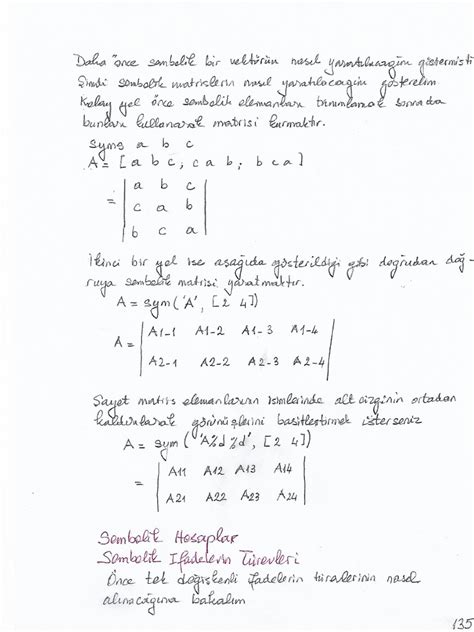 Daha önce sembolik bir vektörün nasıl yaratılacağını göstermişti
Şimdi sembolik matrislerin nasıl yaratılacağını gösterelim
Kolay yol önce sembolik elemanları tanımlamak sonrada
bunları kullanarak matrisi kurmaktır.
syms a b c
A = [a b c; c a b; b c a]
= | a b c |
| c a b |
| b c a |
İkinci bir yol ise aşağıda gösterildiği gibi doğrudan doğ-
ruya sembolik matrisi yaratmaktır.
A = sym('A', [2 4])
A = | A1-1 A1-2 A1-3 A1-4 |
| A2-1 A2-2 A2-3 A2-4 |
Şayet matris elemanlarının isimlerinde alt çizginin ortadan
kaldırılarak görünüşlerini basitleştirmek isterseniz
A = sym('A%d%d', [2 4])
= | A11 A12 A13 A14 |
| A21 A22 A23 A24 |
Sembolik Hesaplar
Sembolik İfadelerin Türevleri
Önce tek değişkenli ifadelerin türevlerinin nasıl
alınacağına bakalım
135